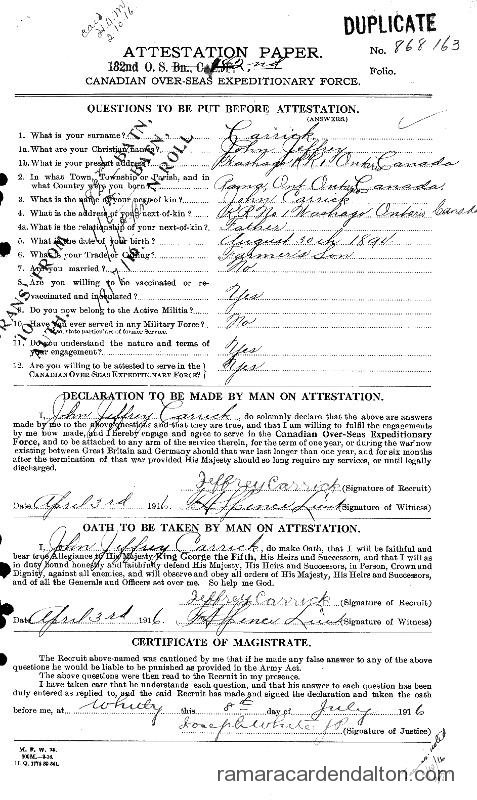 DUPLICATE
ATTESTATION PAPER.
No. 868163
182nd O. S. Bn., C.E.F. 182nd
Folio.
CANADIAN OVER-SEAS EXPEDITIONARY FORCE.
QUESTIONS TO BE PUT BEFORE ATTESTATION.
(ANSWERS)
1. What is your surname? Carrick
1a. What are your Christian names? John Jeffrey
1b. What is your present address? Washago RR1 Ont Canada
2. In what Town, Township or Parish, and in
what Country were you born? Rama, Ont Canada
3. What is the name of your next-of-kin? John Carrick
4. What is the address of your next-of-kin? R R No 1 Washago Ontario Canada
4a. What is the relationship of your next-of-kin? Father
5. What is the date of your birth? August 30th 1894
6. What is your Trade or Calling? Farmer's Son
7. Are you married? No
8. Are you willing to be vaccinated or re-
vaccinated and inoculated? Yes
9. Do you now belong to the Active Militia?
10. Have you ever served in any Military Force? No
If so, state particulars of former Service.
11. Do you understand the nature and terms of
your engagement? Yes
12. Are you willing to be attested to serve in the
CANADIAN OVER-SEAS EXPEDITIONARY FORCE? Yes
DECLARATION TO BE MADE BY MAN ON ATTESTATION.
I, John Jeffrey Carrick, do solemnly declare that the above are answers
made by me to the above questions and that they are true, and that I am willing to fulfil the engagements
by me now made, and I hereby engage and agree to serve in the Canadian Over-Seas Expeditionary
Force, and to be attached to any arm of the service therein, for the term of one year, or during the war now
existing between Great Britain and Germany should that war last longer than one year, and for six months
after the termination of that war provided His Majesty should so long require my services, or until legally
discharged.
Jeffrey Carrick (Signature of Recruit)
Date April 3rd 1916 Spence Lieut (Signature of Witness)
OATH TO BE TAKEN BY MAN ON ATTESTATION.
I, John Jeffrey Carrick, do make Oath, that I will be faithful and
bear true Allegiance to His Majesty King George the Fifth, His Heirs and Successors, and that I will as
in duty bound honestly and faithfully defend His Majesty, His Heirs and Successors, in Person, Crown and
Dignity, against all enemies, and will observe and obey all orders of His Majesty, His Heirs and Successors,
and of all the Generals and Officers set over me. So help me God.
Jeffrey Carrick (Signature of Recruit)
Date April 3rd 1916 Spence Lieut (Signature of Witness)
CERTIFICATE OF MAGISTRATE.
The Recruit above-named was cautioned by me that if he made any false answer to any of the above
questions he would be liable to be punished as provided in the Army Act.
The above questions were then read to the Recruit in my presence.
I have taken care that he understands each question, and that his answer to each question has been
duly entered as replied to, and the said Recruit has made and signed the declaration and taken the oath
before me, at Whitby this 8th day of July 1916
Joseph White J.P. (Signature of Justice)
M. F. W. 23.
ramaracardendalton.com